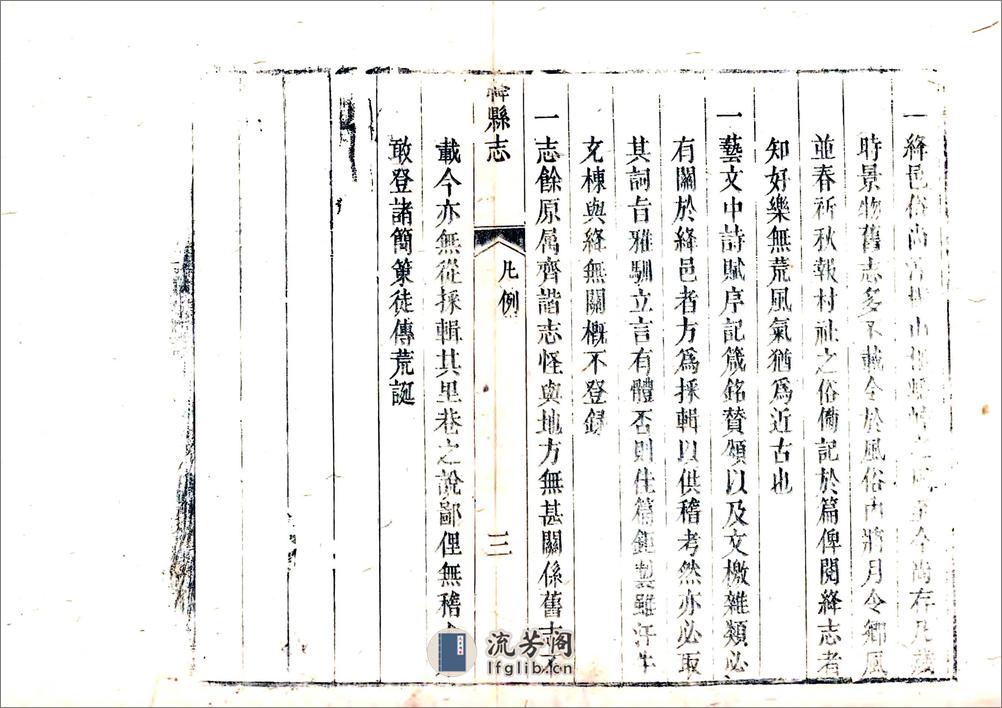 一絳邑俗尚山至今尚存凡歲
時景物舊志多不載今於風俗內將月令鄉風
並春祈秋報村社之俗備記於篇俾閱絳志者
知好樂無荒風氣猶爲近古也
一藝文中詩賦序記箴銘贊頌以及文檄雜類必
有關於絳邑者方爲採輯以供稽考然亦必取
其詞旨雅馴立言有體否則佳篇鉅製雖汗牛
充棟與絳無關概不登録
一志餘原属齊諧志怪與地方無甚關係舊志不
縣志
凡例
三
載今亦無從採輯其里巷之說鄙俚無稽
敢登諸簡策徒傳荒誕
流芳阁
lfglib.cn